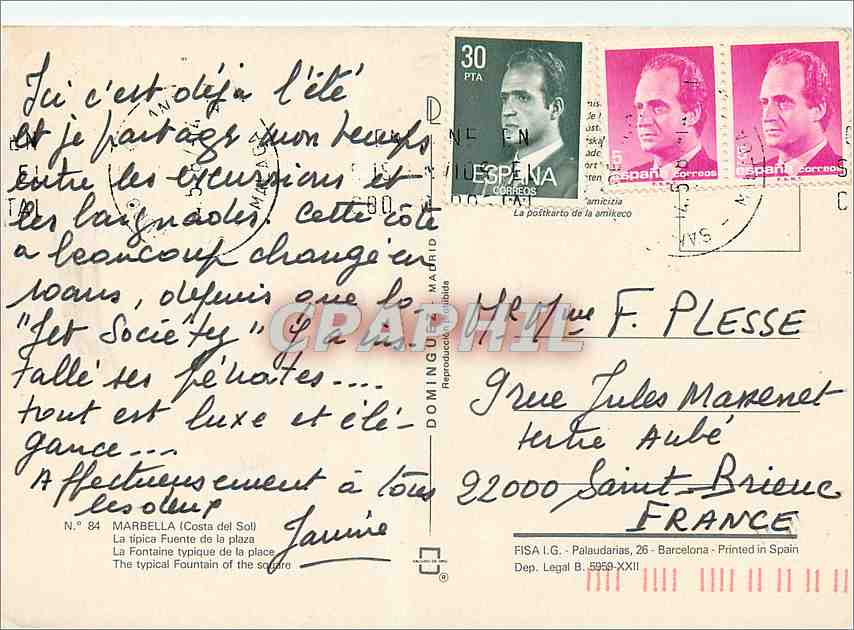 Ici c'est déjà l'été
et je partage mon temps
entre les excursions et
les baignades. Cette côte
a beaucoup changé en
10 ans, depuis que la
"Jet Society" y a ins-
tallé ses pénates....
tout est luxe et élé-
gance...
Affectueusement à tous
les deux
Janine
N.° 84 MARBELLA (Costa del Sol)
La típica Fuente de la plaza
La Fontaine typique de la place
The typical Fountain of the square
DOMINGUEZ - MADRID
Reproducción Prohibida
30
PTA
ESPAÑA
CORREOS
5
españa correos
españa correos
MALAGA
amicizia
La postkarto de la amikeco
Mr Mme F. PLESSE
9 rue Jules Massenet
tertre Aubé
22000 Saint-Brieuc
FRANCE
FISA I.G. - Palaudarias, 26 - Barcelona - Printed in Spain
Dep. Legal B. 5959-XXII
CPAPHIL